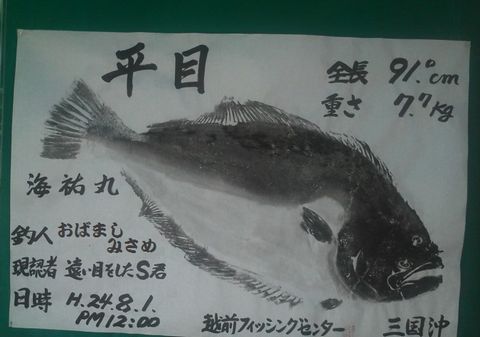 平目
全長 91.0cm
重さ 7.7kg
海祐丸
釣人 おばまし
みさめ
現認者 遠い目をしたS君
日時 H.24.8.1.
PM12:00
越前フィッシングセンター
三国沖